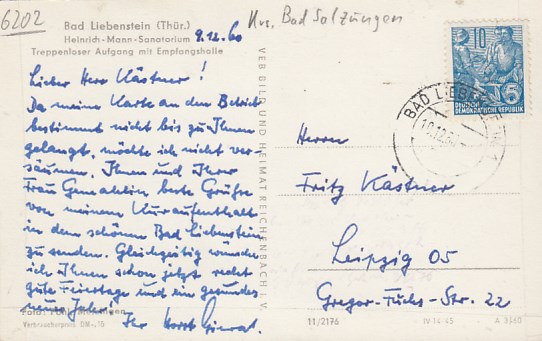 6202
Krs. Bad Salzungen
Bad Liebenstein (Thür.)
Heinrich-Mann-Sanatorium
Treppenloser Aufgang mit Empfangshalle
9.12.60
Lieber Herr Kästner!
Da meine Karte an den Betrieb
bestimmt nicht bis zu Ihnen
gelangt, möchte ich nicht ver-
säumen, Ihnen und Ihrer
Frau Gemahlin beste Grüße
von meinem Kuraufenthalt
in dem schönen Bad Liebenstein
zu senden. Gleichzeitig wünsche
ich Ihnen schon jetzt recht
gute Feiertage und ein gesundes
neues Jahr!
Ihr Horst
Verbraucherpreis DM -,15
VEB BILD UND HEIMAT REICHENBACH I. V.
10
5
DEUTSCHE
DEMOKRATISCHE REPUBLIK
BAD LIEBENSTEIN
Herrn
Fritz Kästner
Leipzig O5
Gregor-Fuchs-Str. 22
11/2176
IV-14-45